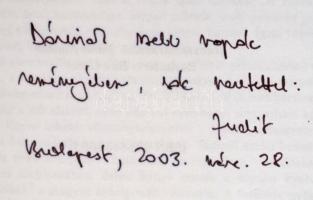 Dórinak szebb napok
reményében, sok szeretettel:
Judit
Budapest, 2003. márc. 28.